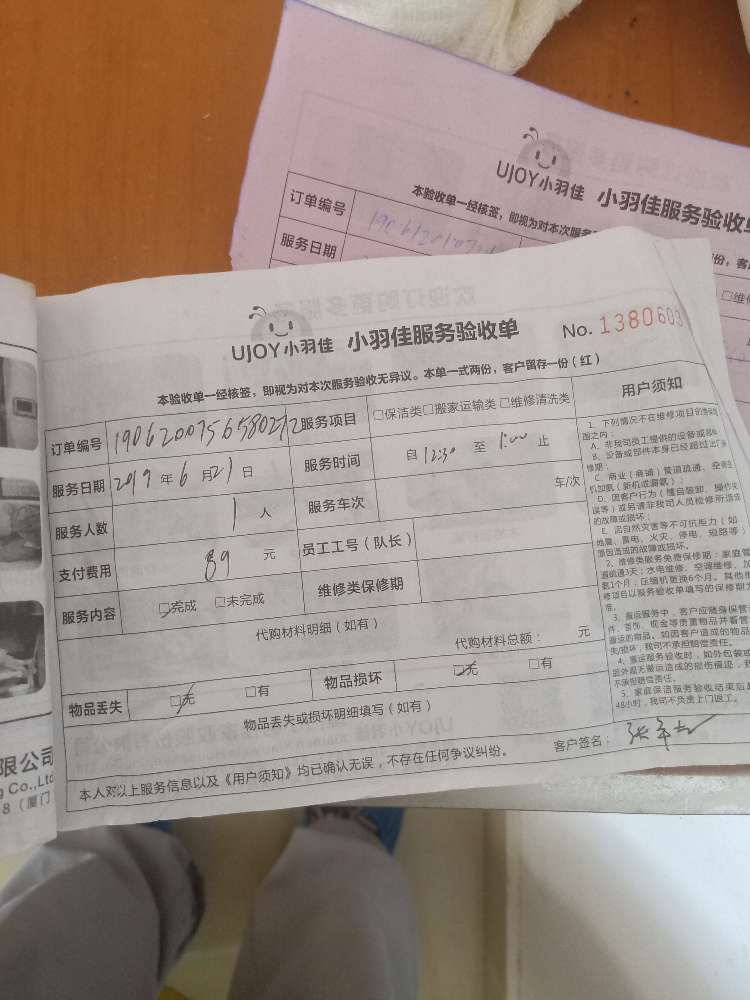 UJOY小羽佳 小羽佳服务验收单
本验收单一经核签，即视为对本次服务
订单编号
服务日期
UJOY小羽佳 小羽佳服务验收单 No. 1380603
本验收单一经核签，即视为对本次服务验收无异议。本单一式两份，客户留存一份（红）
订单编号 服务项目 □保洁类□搬家运输类□维修清洗类
服务日期 2019年6月21日 服务时间 自 12:30 至 1:00 止
服务人数 1 人 服务车次 车/次
支付费用 89 元 员工工号（队长）
服务内容 □完成 □未完成 维修类保修期
代购材料明细（如有）
代购材料总额： 元
物品丢失 □无 □有 物品损坏 □无 □有
物品丢失或损坏明细填写（如有）
本人对以上服务信息以及《用户须知》均已确认无误，不存在任何争议纠纷。
客户签名：
用户须知
1、下列情况不在维修项目的
围之内：
A、非我司员工提供的设备或
B、设备或部件本身已经超过
修期；
C、商业（商铺）管道疏通、空调
机加氨（新机或漏氨）；
D、因客户行为（擅自装卸、操作失
误等）或另请非我司人员检修所造成
的故障或损坏；
E、因自然灾害等不可抗拒力（如
地震、雷电、火灾、停电、短路等）
原因造成的故障或损坏。
2、维修类服务免费保修期：家庭管
道疏通3天；水电维修、空调维修、加
氨1个月；压缩机更换6个月。其他维
修项目以服务验收单填写的保修期为
准。
3、搬运服务中，客户应随身保管
件、首饰、现金等贵重物品并看管
搬运的物品。如因客户造成的物品
失/损坏，我司不承担赔偿责任。
4、搬运服务验收时，如外包装或
品外观无搬运造成的损伤痕迹，我
不承担赔偿责任。
5、家庭保洁服务验收结束后超
48小时，我司不负责上门返工。
限公司
g Co.,Ltd
8（厦门